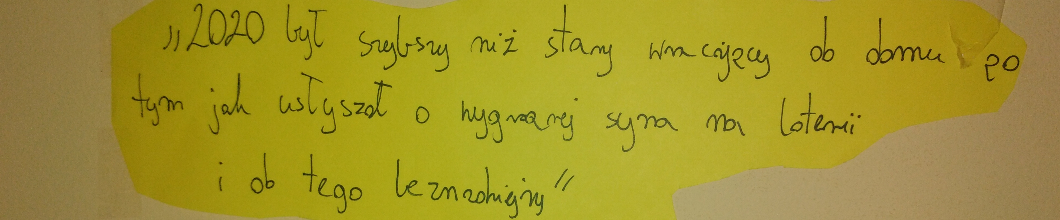 „2020 był szybszy niż stary wracający do domu po
tym jak usłyszał o wygranej syna na loterii
i do tego beznadziejny”